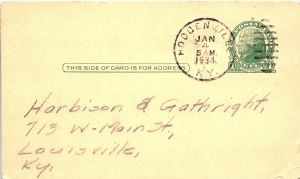 HODGENVILLE
JAN
4
5 AM
1934
KY.
THIS SIDE OF CARD IS FOR ADDRESS
Harbison & Gathright,
713 W-Main St,
Louisville,
Ky.